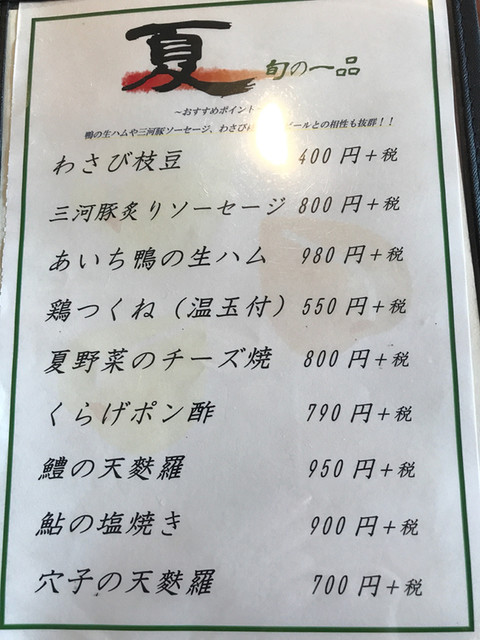 夏 旬の一品
~おすすめポイント
鴨の生ハムや三河豚ソーセージ、わさび ールとの相性も抜群!!
わさび枝豆 400円+税
三河豚炙りソーセージ 800円+税
あいち鴨の生ハム 980円+税
鶏つくね(温玉付) 550円+税
夏野菜のチーズ焼 800円+税
くらげポン酢 790円+税
鱧の天麩羅 950円+税
鮎の塩焼き 900円+税
穴子の天麩羅 700円+税